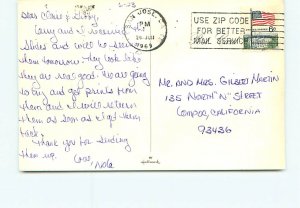 Dear Elaine & Gilby,
Larry and I received the
slides and will be seeing
them tomorrow. They look like
they are real good. We are going
to buy and get prints from
them and I will return
them as soon as I get them
back.
Thank you for sending
them up.
Love, Nola
SAN JOSE, CA
PM
1969
USE ZIP CODE
FOR BETTER
MAIL SERVICE
MR. AND MRS. GILBERT MARTIN
135 NORTH "N" STREET
LOMPOC, CALIFORNIA
93436
Hallmark